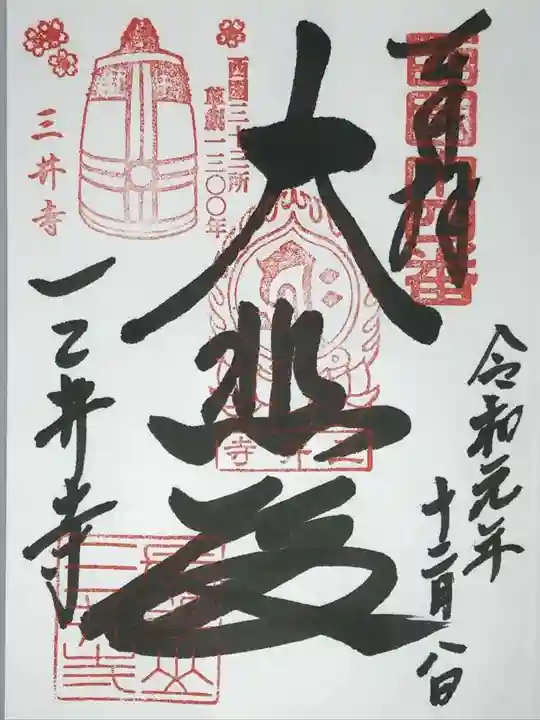 奉拝
西國十四番
令和元年
十二月八日
大悲殿
西國三十三所
草創一三〇〇年
三井寺
三井寺
三井寺